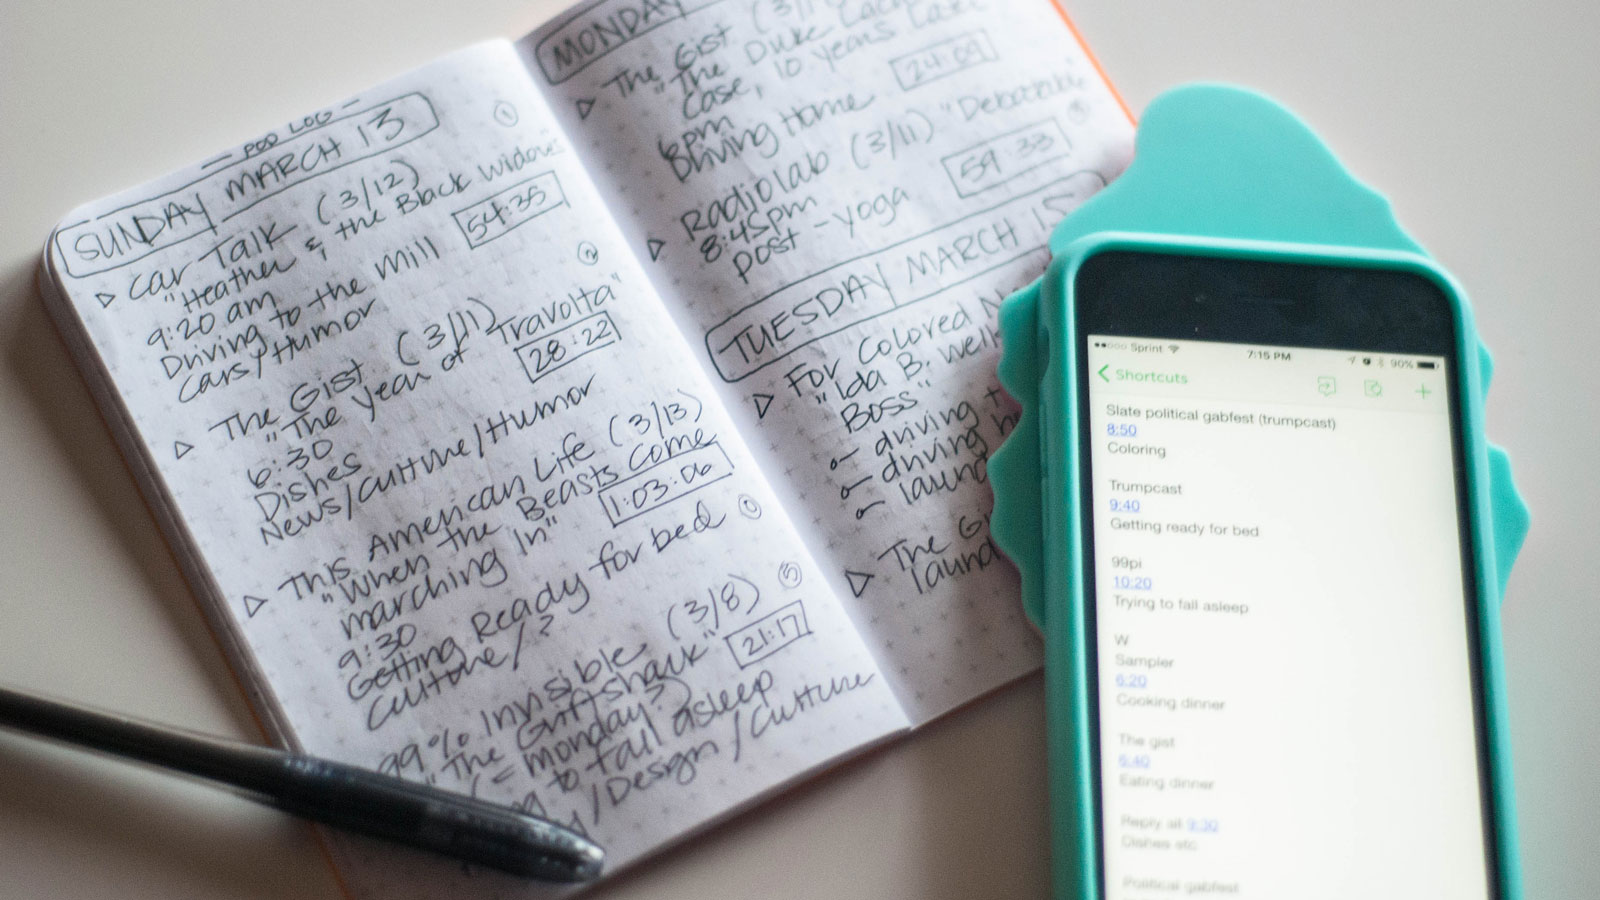 POD LOG
SUNDAY MARCH 13
1
Car Talk (3/12)
"Heather & the Black Widows"
9:20 am
54:35
Driving to the Mill
Cars/Humor
2
The Gist (3/11)
"The Year of Travolta"
6:30
28:22
Dishes
News/Culture/Humor
This American Life (3/13)
"When the Beasts Come
marching In"
1:03:06
9:30
Getting Ready for bed
Culture/?
99% Invisible (3/8)
"The Giftshack"
21:17
(= monday?)
to fall asleep
/Design/Culture
MONDAY
The Gist
"The Duke
Case, 10 years Later
24:09
6pm
Driving Home
Radiolab (3/11) "Debatable"
8:45pm
59:33
post-yoga
TUESDAY MARCH 15
For Colored
"Ida B. Wells
Boss"
driving
driving
The
Sprint
7:15 PM
90%
Shortcuts
Slate political gabfest (trumpcast)
8:50
Coloring
Trumpcast
9:40
Getting ready for bed
99pi
10:20
Trying to fall asleep
W
Sampler
6:20
Cooking dinner
The gist
6:40
Eating dinner
Reply all 9:30
Dishes etc
Political gabfest